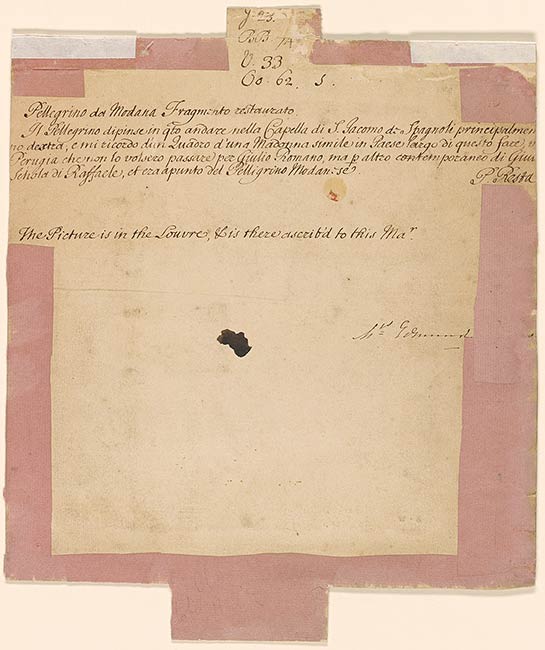 J. 23.
BB. 74
V. 33
Oo. 62. S.
Pellegrino da Modana Fragmento restaurato.
Il Pellegrino dipinse in qto andare nella Capella di S. Iacomo de Spagnoli principalmen
no destra, e mi ricordo d'un Quadro d'una Madonna simile in Paese largo di questo fare,
Perugia che non lo volsero passare per Giulio Romano, ma p altro contemporaneo di Giu
Schola di Raffaele, et era apunto del Pelligrino Modanese.
P. Resta
The Picture is in the Louvre, & is there ascrib'd to this Mar.